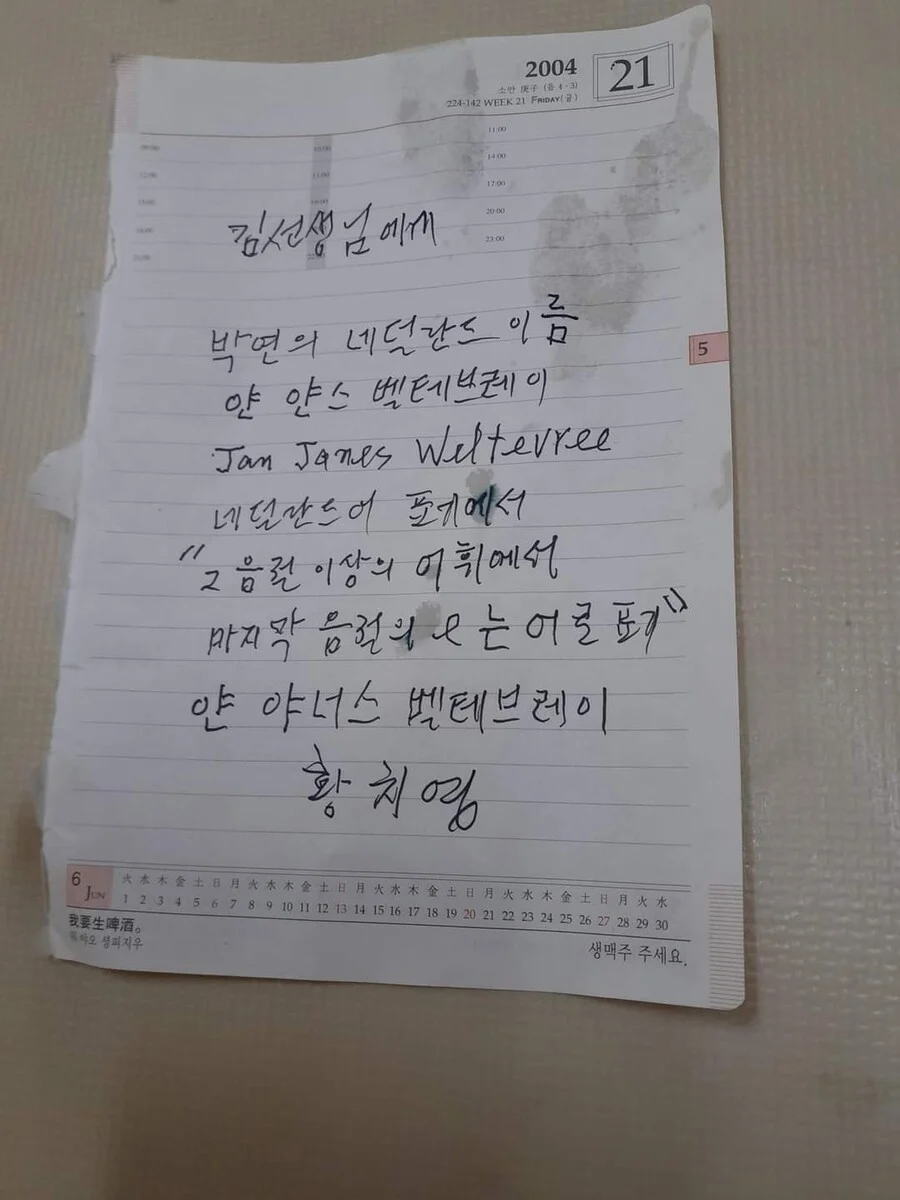 2004
21
소만 庚子 (음 4·3)
224-142 WEEK 21 FRIDAY(금)
09:00 10:00 11:00
12:00 14:00
17:00
20:00
23:00
김선생님에게
박연의 네덜란드 이름
얀 얀스 벨테브레이
Jan Janes Weltevree
네덜란드어 표기에서
"2음절 이상의 어휘에서
마지막 음절의 e는 어로 표기"
얀 야너스 벨테브레이
황치영
5
6 JUN
火 水 木 金 土 日 月 火 水 木 金 土 日 月 火 水 木 金 土 日 月 火 水 木 金 土 日 月 火 水
1 2 3 4 5 6 7 8 9 10 11 12 13 14 15 16 17 18 19 20 21 22 23 24 25 26 27 28 29 30
我要生啤酒。
야오 셩피지우
생맥주 주세요.